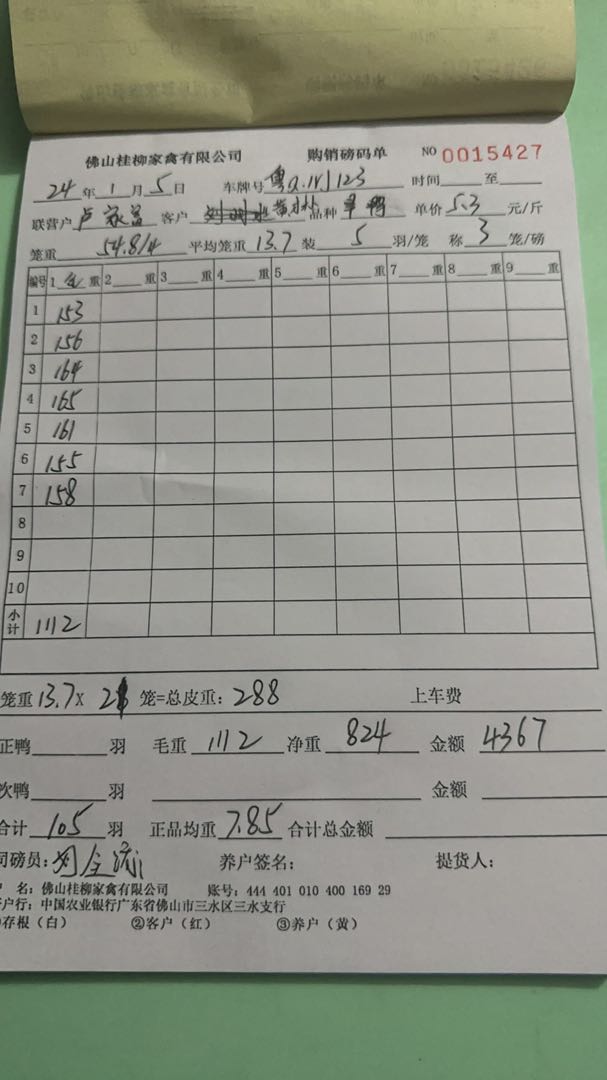 佛山桂柳家禽有限公司 购销磅码单 NO 0015427
24年1月5日 车牌号 粤Q. 123 时间 至
联营户 卢家益 客户 品种 单鸭 单价 5.3 元/斤
笼重 54.8/4 平均笼重 13.7 装 5 羽/笼 称 3 笼/磅
编号 1 毛 重 2 重 3 重 4 重 5 重 6 重 7 重 8 重 9 重
1 153
2 156
3 164
4 165
5 161
6 155
7 158
8
9
10
小计 1112
笼重 13.7 X 21 笼=总皮重: 288 上车费
正鸭 羽 毛重 1112 净重 824 金额 4367
次鸭 羽 金额
合计 105 羽 正品均重 7.85 合计总金额
司磅员: 养户签名: 提货人:
户 名: 佛山桂柳家禽有限公司 账号: 444 401 010 400 169 29
户行: 中国农业银行广东省佛山市三水区三水支行
存根(白) ②客户(红) ③养户(黄)